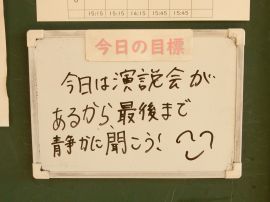 15:15 15:15 14:15 15:45 15:45
今日の目標
今日は演説会が
あるから、最後まで
静かに聞こう!